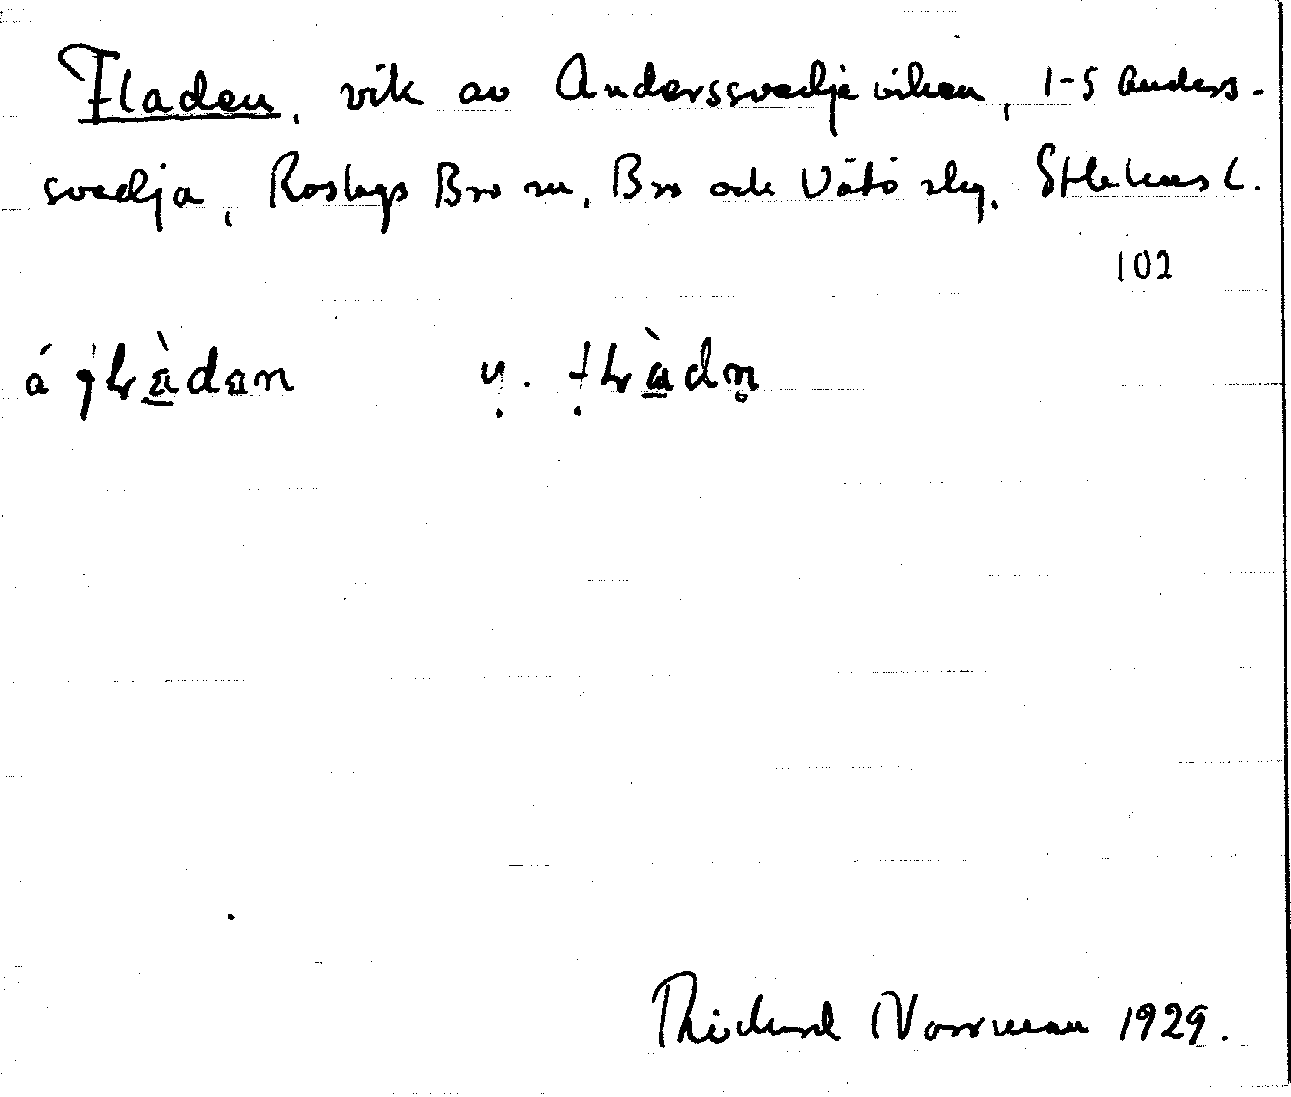 Fladen, vik av Anderssvedjeviken, 1-5 Anders-
svedja, Roslags Bro sn, Bro och Vätö skg. Sthlms l.
102
á
y.
Rickard Norrman 1929.